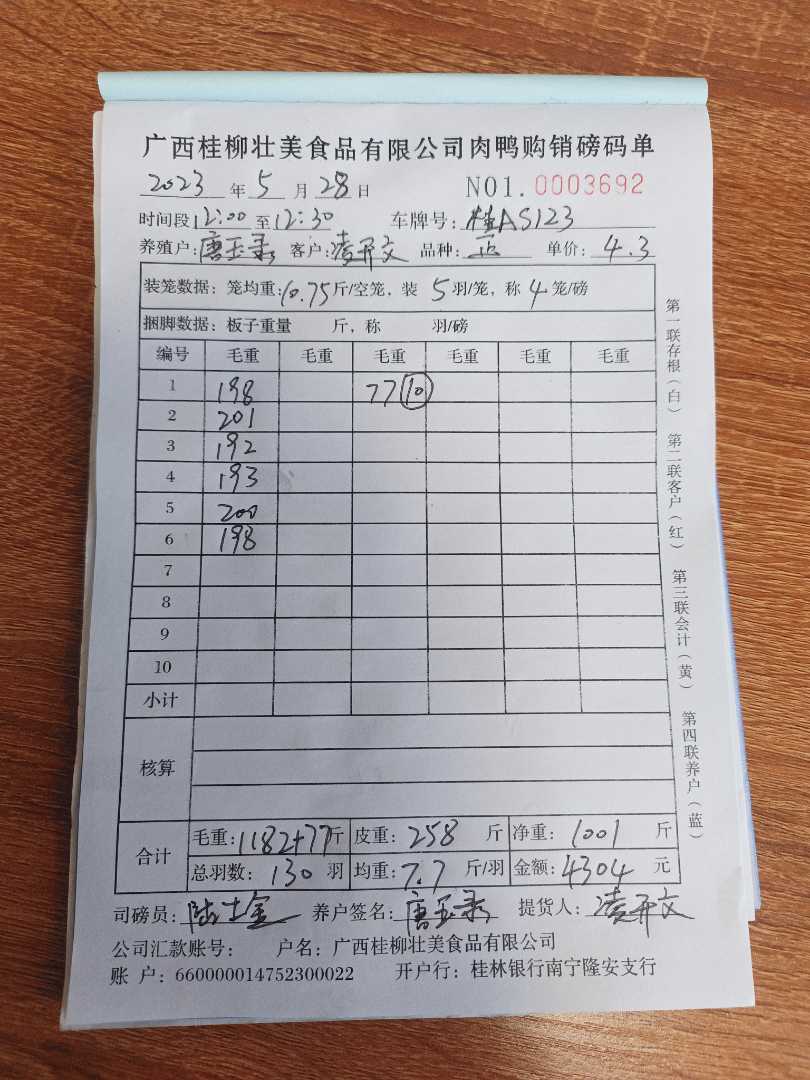 广西桂柳壮美食品有限公司肉鸭购销磅码单
2023 年 5 月 28 日 NO1. 0003692
时间段 12:00 至 12:30 车牌号: 桂AS123
养殖户: 唐玉录 客户: 凌开文 品种: 正 单价: 4.3
装笼数据: 笼均重: 10.75 斤/空笼, 装 5 羽/笼, 称 4 笼/磅
捆脚数据: 板子重量 斤, 称 羽/磅
编号 毛重 毛重 毛重 毛重 毛重 毛重
1 198 77 10
2 201
3 192
4 193
5 200
6 198
7
8
9
10
小计
核算
合计 毛重: 1182+77 斤 皮重: 258 斤 净重: 1001 斤
总羽数: 130 羽 均重: 7.7 斤/羽 金额: 4304 元
司磅员: 陆士金 养户签名: 唐玉录 提货人: 凌开文
公司汇款账号: 户名: 广西桂柳壮美食品有限公司
账 户: 660000014752300022 开户行: 桂林银行南宁隆安支行
第一联存根(白) 第二联客户(红) 第三联会计(黄) 第四联养户(蓝)